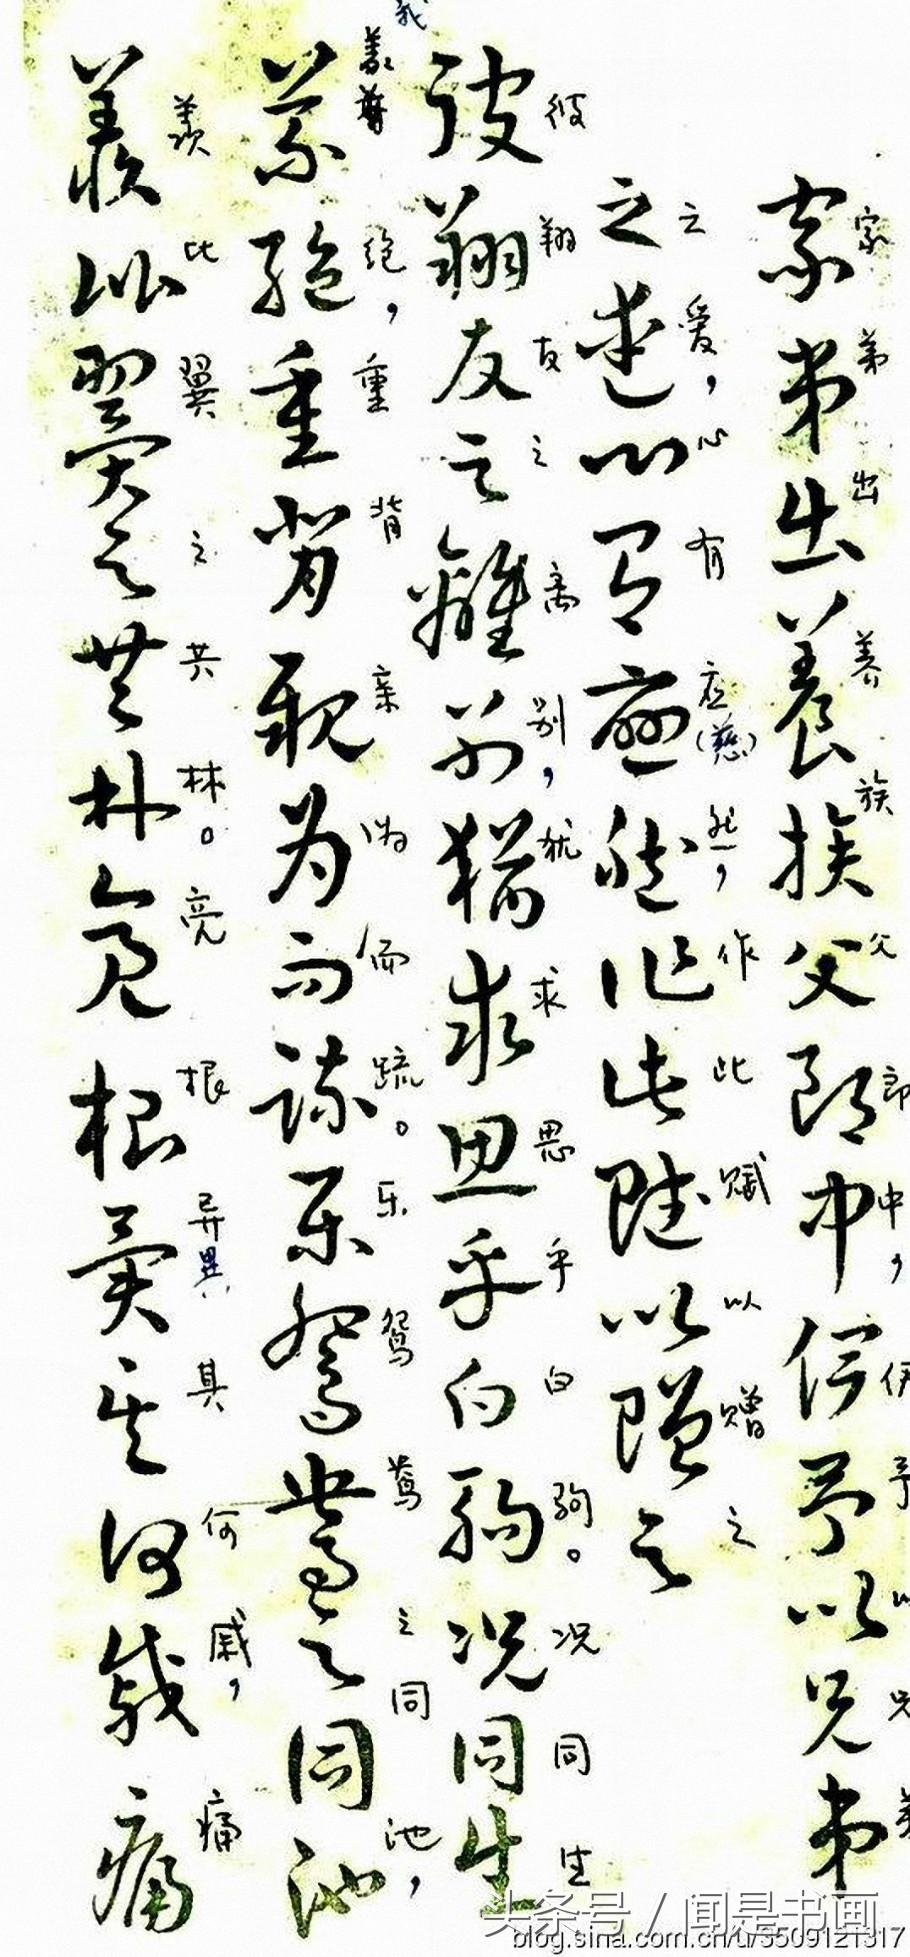 家弟出养族父郎中,伊予以兄弟
家弟出養族父郎中伊予以兄弟
之爱,心有应(慈)然,作此赋以赠之
之愛心有應然作此賦以贈之
彼翔友之离别,犹求思乎白驹。况同生
彼翔友之離別猶求思乎白駒况同生
绝,重背亲为而疏。乐鸳鸯之同池,
絕重背親为而疎樂鴛鴦之同池
羡比翼之共林。亮根异異其何戚,痛
羨比翼之共林亮根異其何戚痛
头条号 / 闻是书画
blog.sina.com.cn/u/3509121317